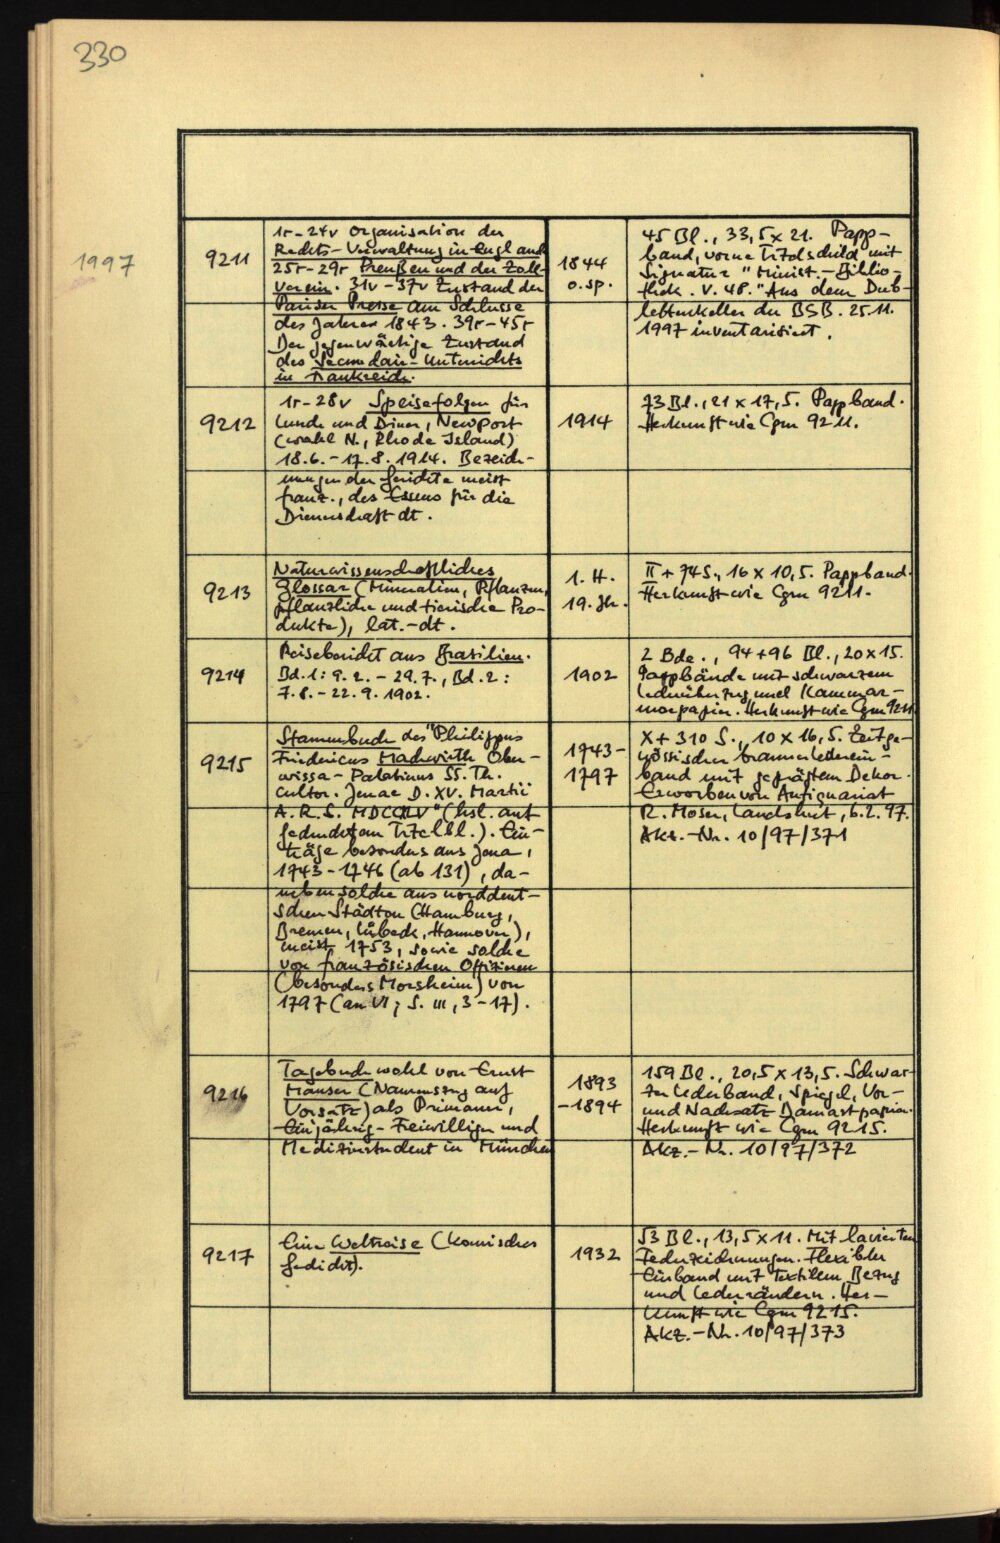 330
1997
9211
1r-24v Organisation der
Rechts-Verwaltung in England
25r-29r Preußen und der Zoll-
verein. 31v-37v Zustand der
Pariser Presse am Schlusse
des Jahres 1843. 39r-45r
Der gegenwärtige Zustand
des Secondair-Unterrichts
in Frankreich.
1844
o.Sp.
45 Bl., 33,5 x 21. Papp-
band, vorne Titelschild mit
Signatur "Minist.-Biblio-
thek. V. 48." Aus dem Dub-
lettenkeller der BSB. 25.11.
1997 inventarisiert.
9212
1r-28v Speisefolgen für
Lunch und Diner, Newport
(wohl N., Rhode Island)
18.6.-17.8.1914. Bezeich-
nungen der Gerichte meist
franz., des Essens für die
Dienerschaft dt.
1914
73 Bl., 21 x 17,5. Pappband.
Herkunft wie Cgm 9211.
9213
Naturwissenschaftliches
Glossar (Mineralien, Pflanzen,
pflanzliche und tierische Pro-
dukte), lat.-dt.
1. H.
19. Jh.
II + 74 S., 16 x 10,5. Pappband.
Herkunft wie Cgm 9211.
9214
Reisebericht aus Brasilien.
Bd. 1: 9.2.-29.7., Bd. 2:
7.8.-22.9.1902.
1902
2 Bde., 94+96 Bl., 20x15.
Pappbände mit schwarzem
Lederüberzug und Kammmar-
morpapier. Herkunft wie Cgm 9211
9215
Stammbuch des "Philippus
Fridericus Machwirth Ober-
wissa-Palatinus SS. Th.
Cultor. Jenae D. XV. Martii
A. R. S. (hsl. auf
gedrucktem Titelbl.). Ein-
träge besonders aus Jena,
1743-1746 (ab 131), da-
neben solche aus norddeut-
schen Städten (Hamburg,
Bremen, Lübeck, Hannover),
meist 1753, sowie solche
von französischen Offizieren
(besonders Morsheim) von
1797 (an VI; S. III, 3-17).
1743-
1797
X + 310 S., 10 x 16,5. Zeitge-
nössischer brauner Lederein-
band mit geprägtem Dekor.
Erworben von Antiquariat
R. Moser, Landshut, 6.2.97.
Akz.-Nr. 10/97/371
9216
Tagebuch wohl von Ernst
Mauser (Namenszug auf
Vorsatz) als Primaner,
Einjährig-Freiwilliger und
Medizinstudent in München
1893
-1894
159 Bl., 20,5 x 13,5. Schwar-
zer Lederband, Spiegel, Vor-
und Nachsatz Damastpapier.
Herkunft wie Cgm 9215.
Akz.-Nr. 10/97/372
9217
Eine Weltreise (komisches
Gedicht).
1932
53 Bl., 13,5 x 11. Mit lavierten
Federzeichnungen. Flexibler
Einband mit textilem Bezug
und Lederrändern. Her-
kunft wie Cgm 9215.
Akz.-Nr. 10/97/373